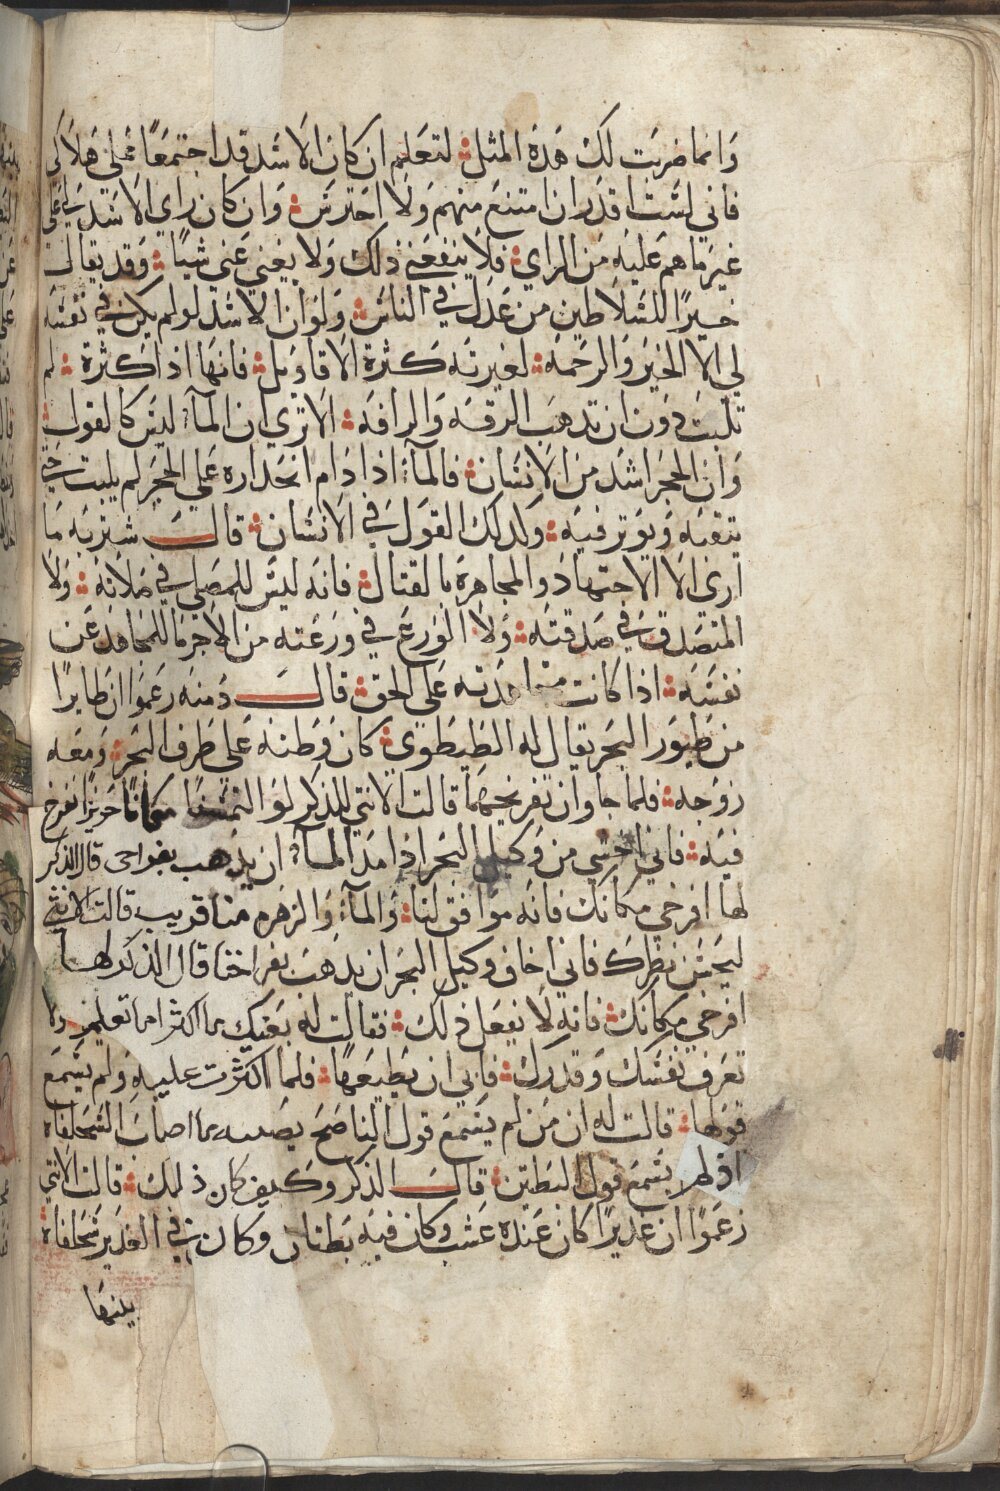 وانما ضربت لك هذه المثل لتعلم ان كان الاسد قد اجتمعا على هلاكي
فاني لست اقدر ان امتنع منهم ولا احترس وان كان راي الاسد لي علي
غير ما هم عليه من الراي فلا ينفعني ذلك ولا يغني عني شيا وقد يقال
خيرا للسلاطين من عدل في الناس ولو ان الاسد لو لم يكن في نفسه
لي الا الخير والرحمه لغيرته كثرة الاقاويل فانها اذا كثرة لم
تلبت دون ان تدهب الرقه والرافه الا تري ان المآء ليس كالقول
وان الحجر اشد من الانسان فالمآء اذا دام انحداره علي الحجر لم يلبت حتي
يتقبه ويوتر فيه وكدلك القول في الانسان قال شتربه ما
اري الا الاجتهاد والمجاهرة بالقتال فانه ليس للمصلي في صلاته ولا
المتصدق في صدقته ولا الورع في ورعته من الاجر ما للمجاهد عن
نفسه اذا كانت مجاهدته على الحق قال دمنه زعموا ان طايرا
من طيور البحر يقال له الطيطوي كان وطنه على طرف البحر ومعه
زوجه فلما جا وان تفريخهما قالت الانتي للذكر لو التمسنا مكانا حريزا نفرخ
فيه فاني اخشي من وكيل البحر اذا مد المآء ان يدهب بفراخي قال الذكر
لها افرخي مكانك فانه موافق لنا والمآء والزهر منا قريب قالت الانثي
ليحسن نظرك فاني اخاف وكيل البحر ان يدهب بفراخنا قال الذكر لها
افرخي مكانك فانه لا يفعل ذلك فقالت له بعيك ما اكثر اما تعلم ولا
تعرف نفسك وقدرك فابي ان يطيعها فلما اكثرت عليه ولم يسمع
قولها قالت له ان من لم يسمع قول الناصح يصيبه ما اصاب السحلفاه
اذ لم يسمع قول البطتين قال الذكر وكيف كان ذلك قالت الانتي
زعموا ان غديرا كان عنده عشب وكان فيه بطتان وكان في الغدير سحلفاة
بينها